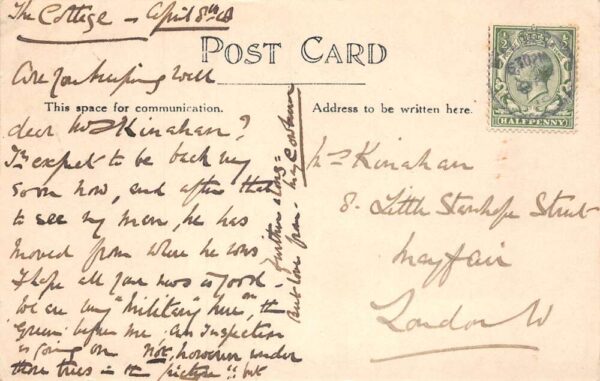 The Cottage – April 8th 18
POST CARD
Are you keeping well
This space for communication.
Address to be written here.
dear Mrs Kinahan?
I expect to be back very
soon now, and after that
to see my man, he has
moved from where he was
I hope all your news is good –
We are very "military" here, on the
Green before me, an Inspection
is going on Not, however under
those trees – in the picture!! but
further along –
Best love from –
Mrs Kinahan
8 – Little Stanhope Street
Mayfair
London W
HALFPENNY